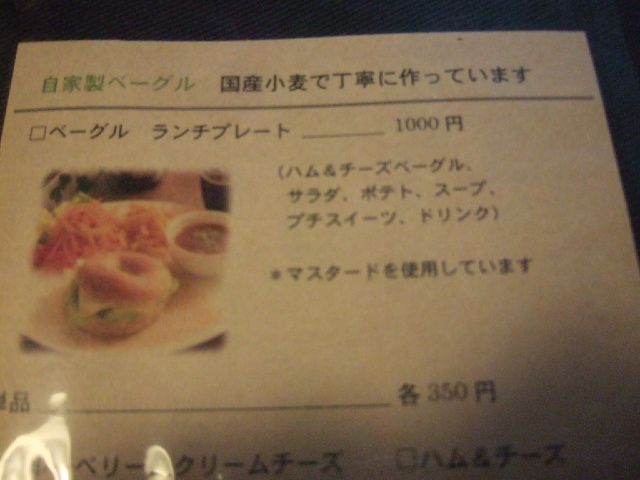 自家製ベーグル 国産小麦で丁寧に作っています
□ベーグル ランチプレート 1000円
（ハム＆チーズベーグル、
サラダ、ポテト、スープ、
プチスイーツ、ドリンク）
＊マスタードを使用しています
単品 各350円
ベリー クリームチーズ □ハム＆チーズ